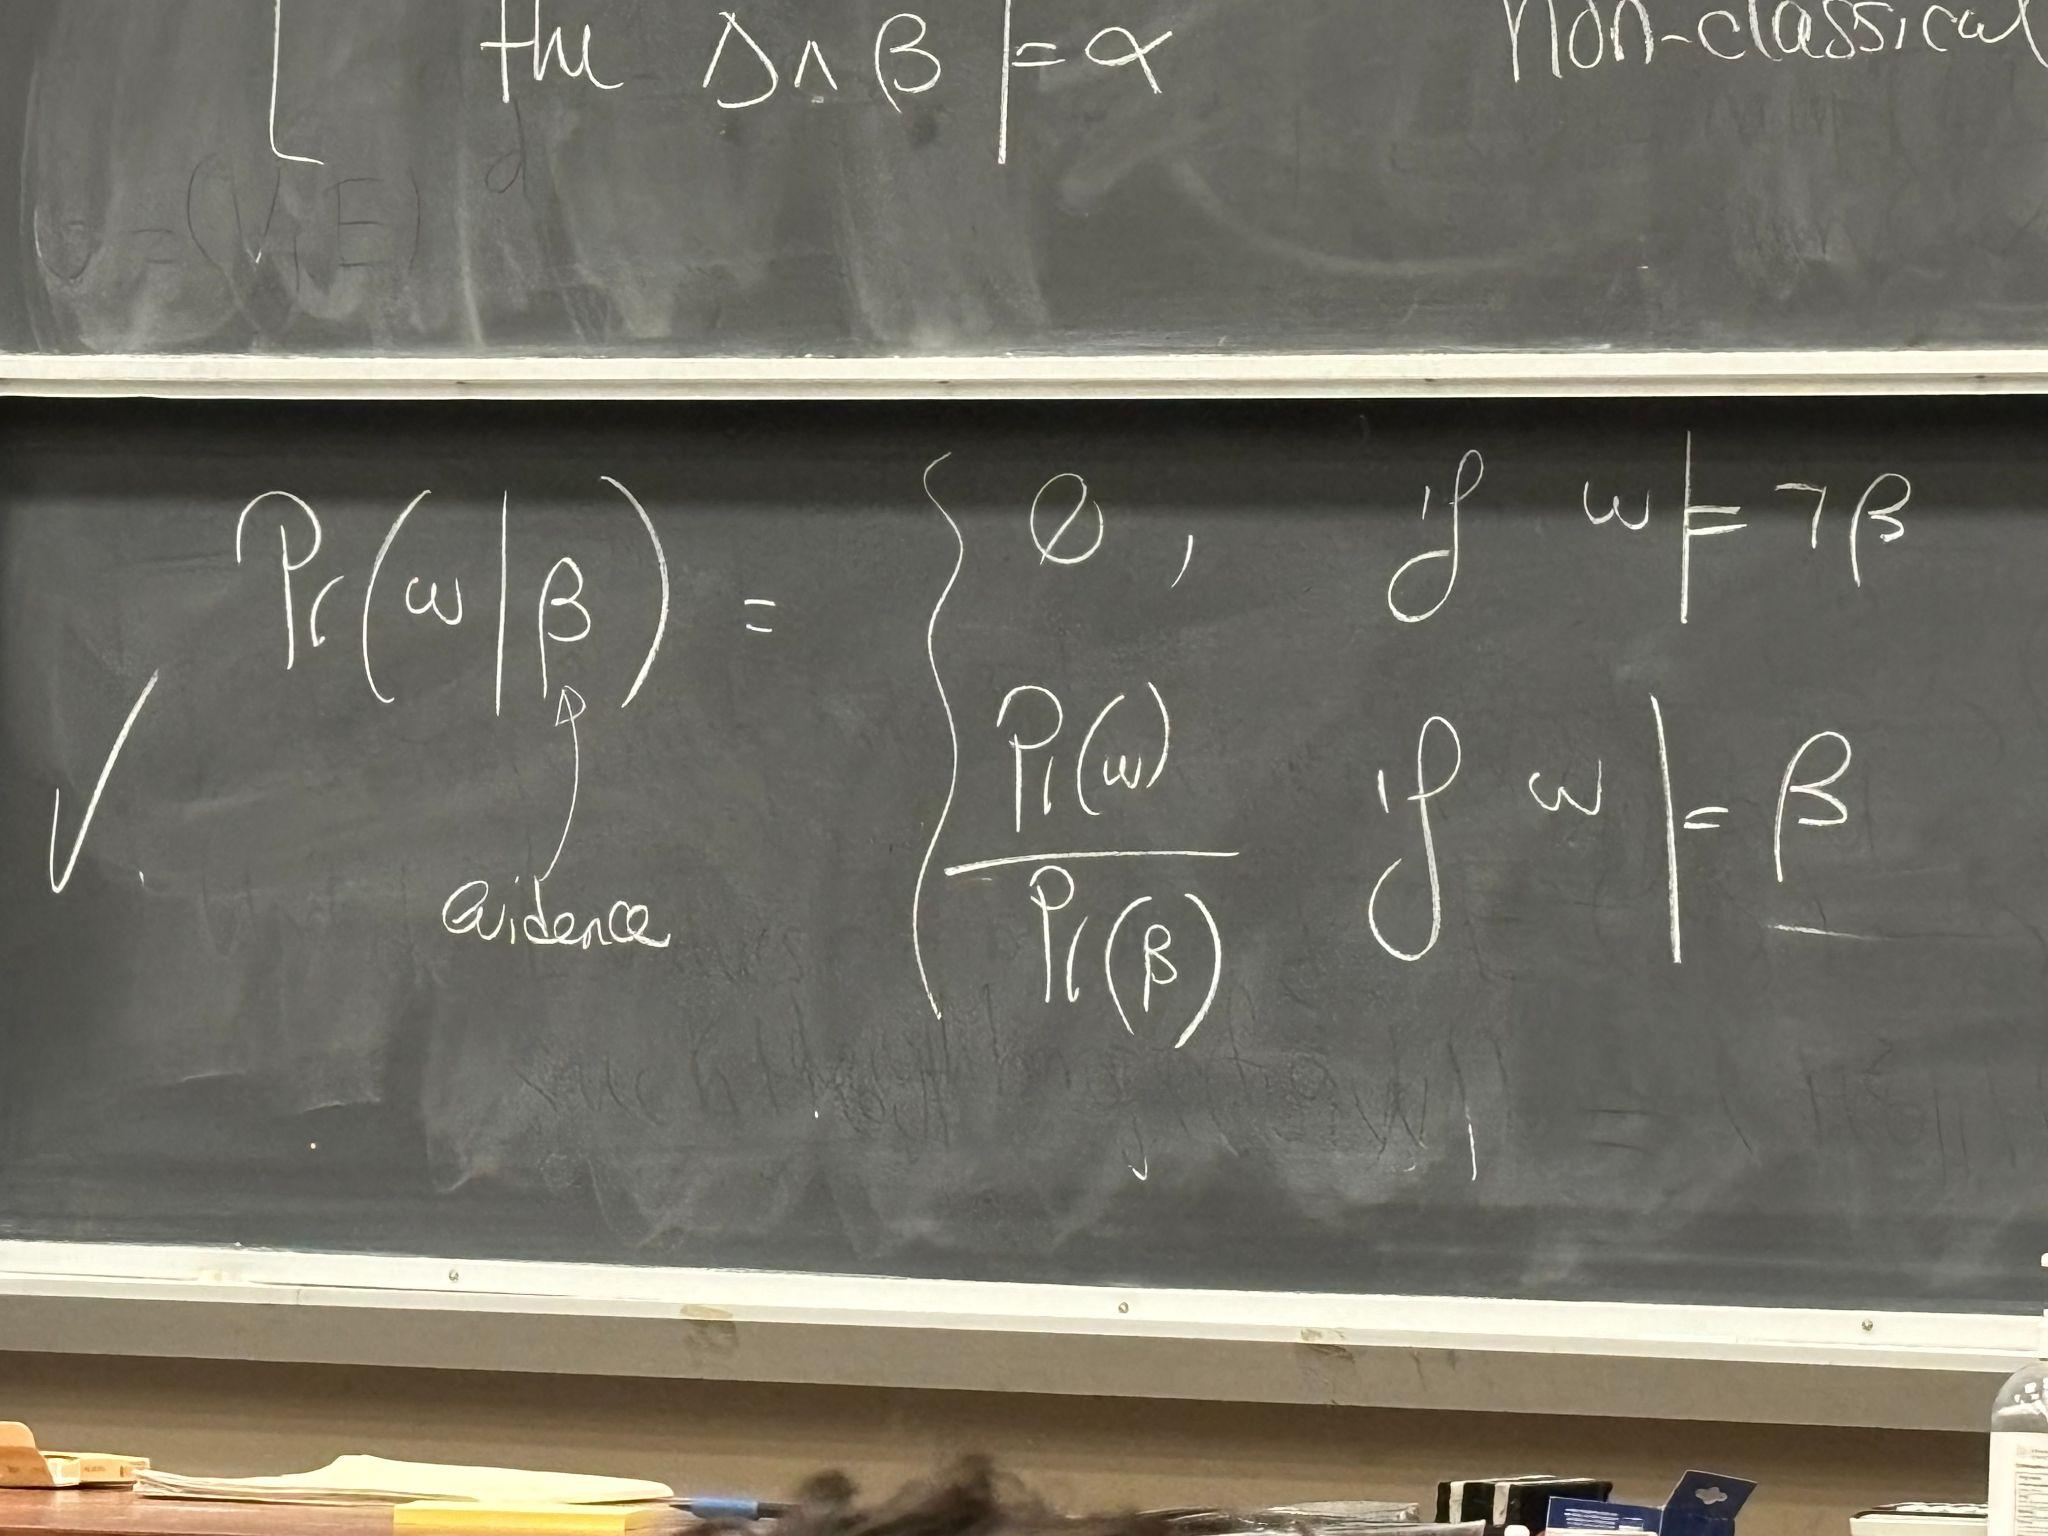 the Δ∧β ⊨ α non-classical
U = (V, E)
Pr(ω|β) = { 0, if ω ⊨ ¬β
Pr(ω) / Pr(β) if ω ⊨ β
evidence